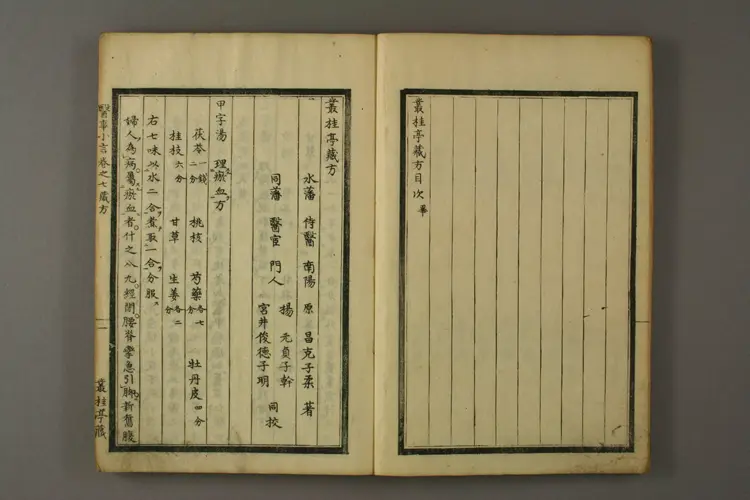 叢桂亭藏方目次 畢
叢桂亭藏方
水藩 侍醫 南陽 原 昌克子柔 著
同藩 醫官 門人 楊 元貞子幹
宮井俊德子明 同挍
甲字湯 理瘀血方
茯苓一錢二分 桃核 芍藥各七分 牡丹皮四分
桂枝六分 甘草 生姜各二分
右七味以水二合煮取一合分服
婦人為病屬瘀血者什之八九經閉腰脊攣急引脚
醫事小言卷之七藏方
一
叢桂亭藏